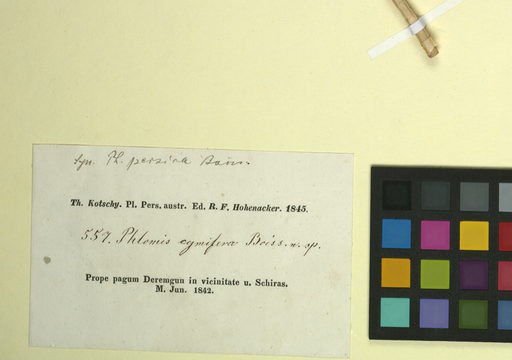 syn. Ph. persica Boiss.
Th. Kotschy. Pl. Pers. austr. Ed. R. F. Hohenacker. 1845.
557. Phlomis cymifera Boiss. n. sp.
Prope pagum Deremgun in vicinitate u. Schiras.
M. Jun. 1842.